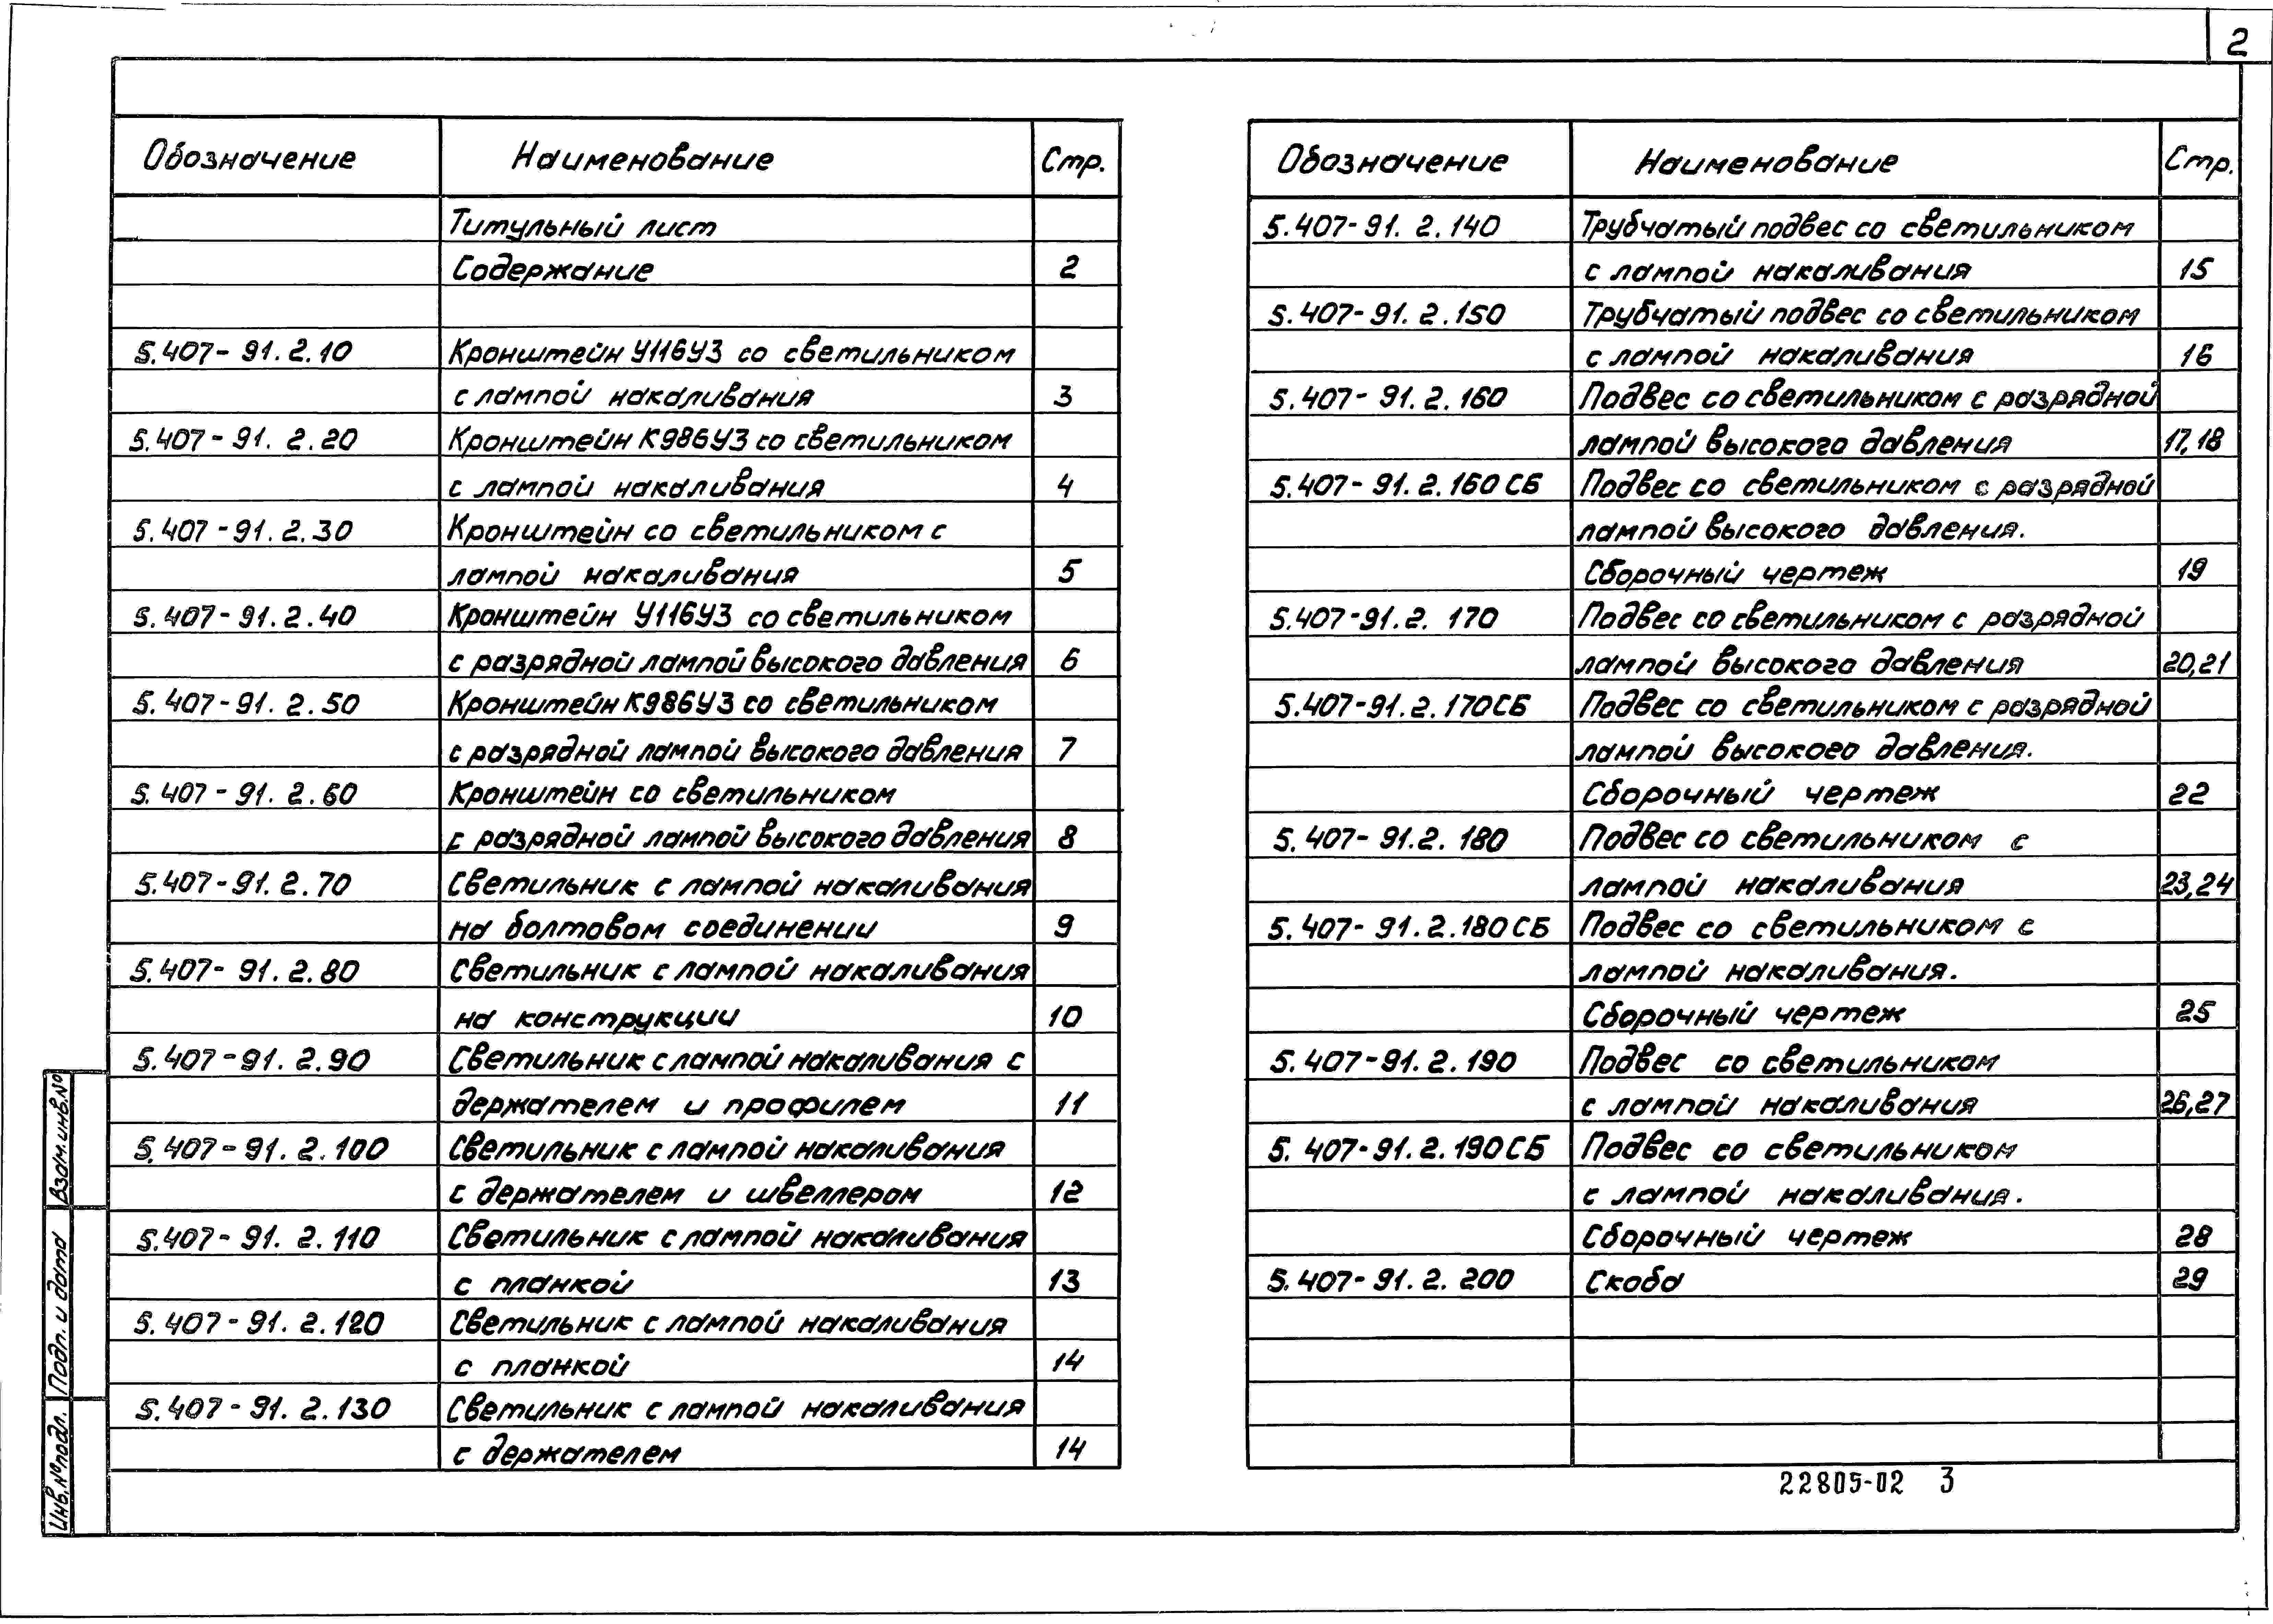 2
Обозначение Наименование Стр.
Титульный лист
Содержание 2
5.407-91.2.10 Кронштейн У116У3 со светильником
с лампой накаливания 3
5.407-91.2.20 Кронштейн К986У3 со светильником
с лампой накаливания 4
5.407-91.2.30 Кронштейн со светильником с
лампой накаливания 5
5.407-91.2.40 Кронштейн У116У3 со светильником
с разрядной лампой высокого давления 6
5.407-91.2.50 Кронштейн К986У3 со светильником
с разрядной лампой высокого давления 7
5.407-91.2.60 Кронштейн со светильником
с разрядной лампой высокого давления 8
5.407-91.2.70 Светильник с лампой накаливания
на болтовом соединении 9
5.407-91.2.80 Светильник с лампой накаливания
на конструкции 10
5.407-91.2.90 Светильник с лампой накаливания с
держателем и профилем 11
5.407-91.2.100 Светильник с лампой накаливания
с держателем и швеллером 12
5.407-91.2.110 Светильник с лампой накаливания
с планкой 13
5.407-91.2.120 Светильник с лампой накаливания
с планкой 14
5.407-91.2.130 Светильник с лампой накаливания
с держателем 14
Обозначение Наименование Стр.
5.407-91.2.140 Трубчатый подвес со светильником
с лампой накаливания 15
5.407-91.2.150 Трубчатый подвес со светильником
с лампой накаливания 16
5.407-91.2.160 Подвес со светильником с разрядной
лампой высокого давления 17,18
5.407-91.2.160СБ Подвес со светильником с разрядной
лампой высокого давления.
Сборочный чертеж 19
5.407-91.2.170 Подвес со светильником с разрядной
лампой высокого давления 20,21
5.407-91.2.170СБ Подвес со светильником с разрядной
лампой высокого давления.
Сборочный чертеж 22
5.407-91.2.180 Подвес со светильником с
лампой накаливания 23,24
5.407-91.2.180СБ Подвес со светильником с
лампой накаливания.
Сборочный чертеж 25
5.407-91.2.190 Подвес со светильником
с лампой накаливания 26,27
5.407-91.2.190СБ Подвес со светильником
с лампой накаливания.
Сборочный чертеж 28
5.407-91.2.200 Скоба 29
22805-02 3
Взам.инв.№
Подп. и дата
Инв.№подл.